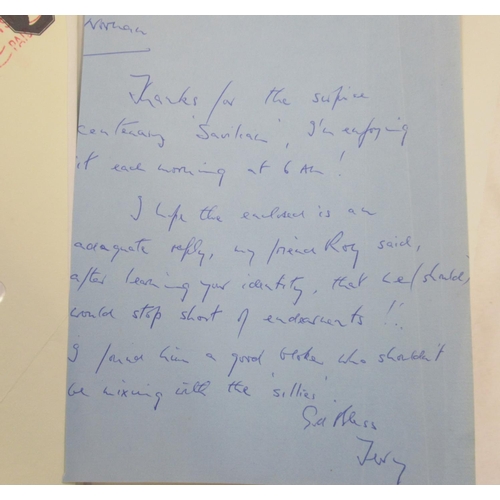 Norman
Thanks for the surprise
centenary 'Savilian', I'm enjoying
it each morning at 6 AM!
I hope the enclosed is an
adequate reply, my friend Roy said,
after learning your identity, that we/should/
would stop short of endearments!!.
I found him a good bloke who shouldn't
be mixing with the 'sillies'.
God Bless